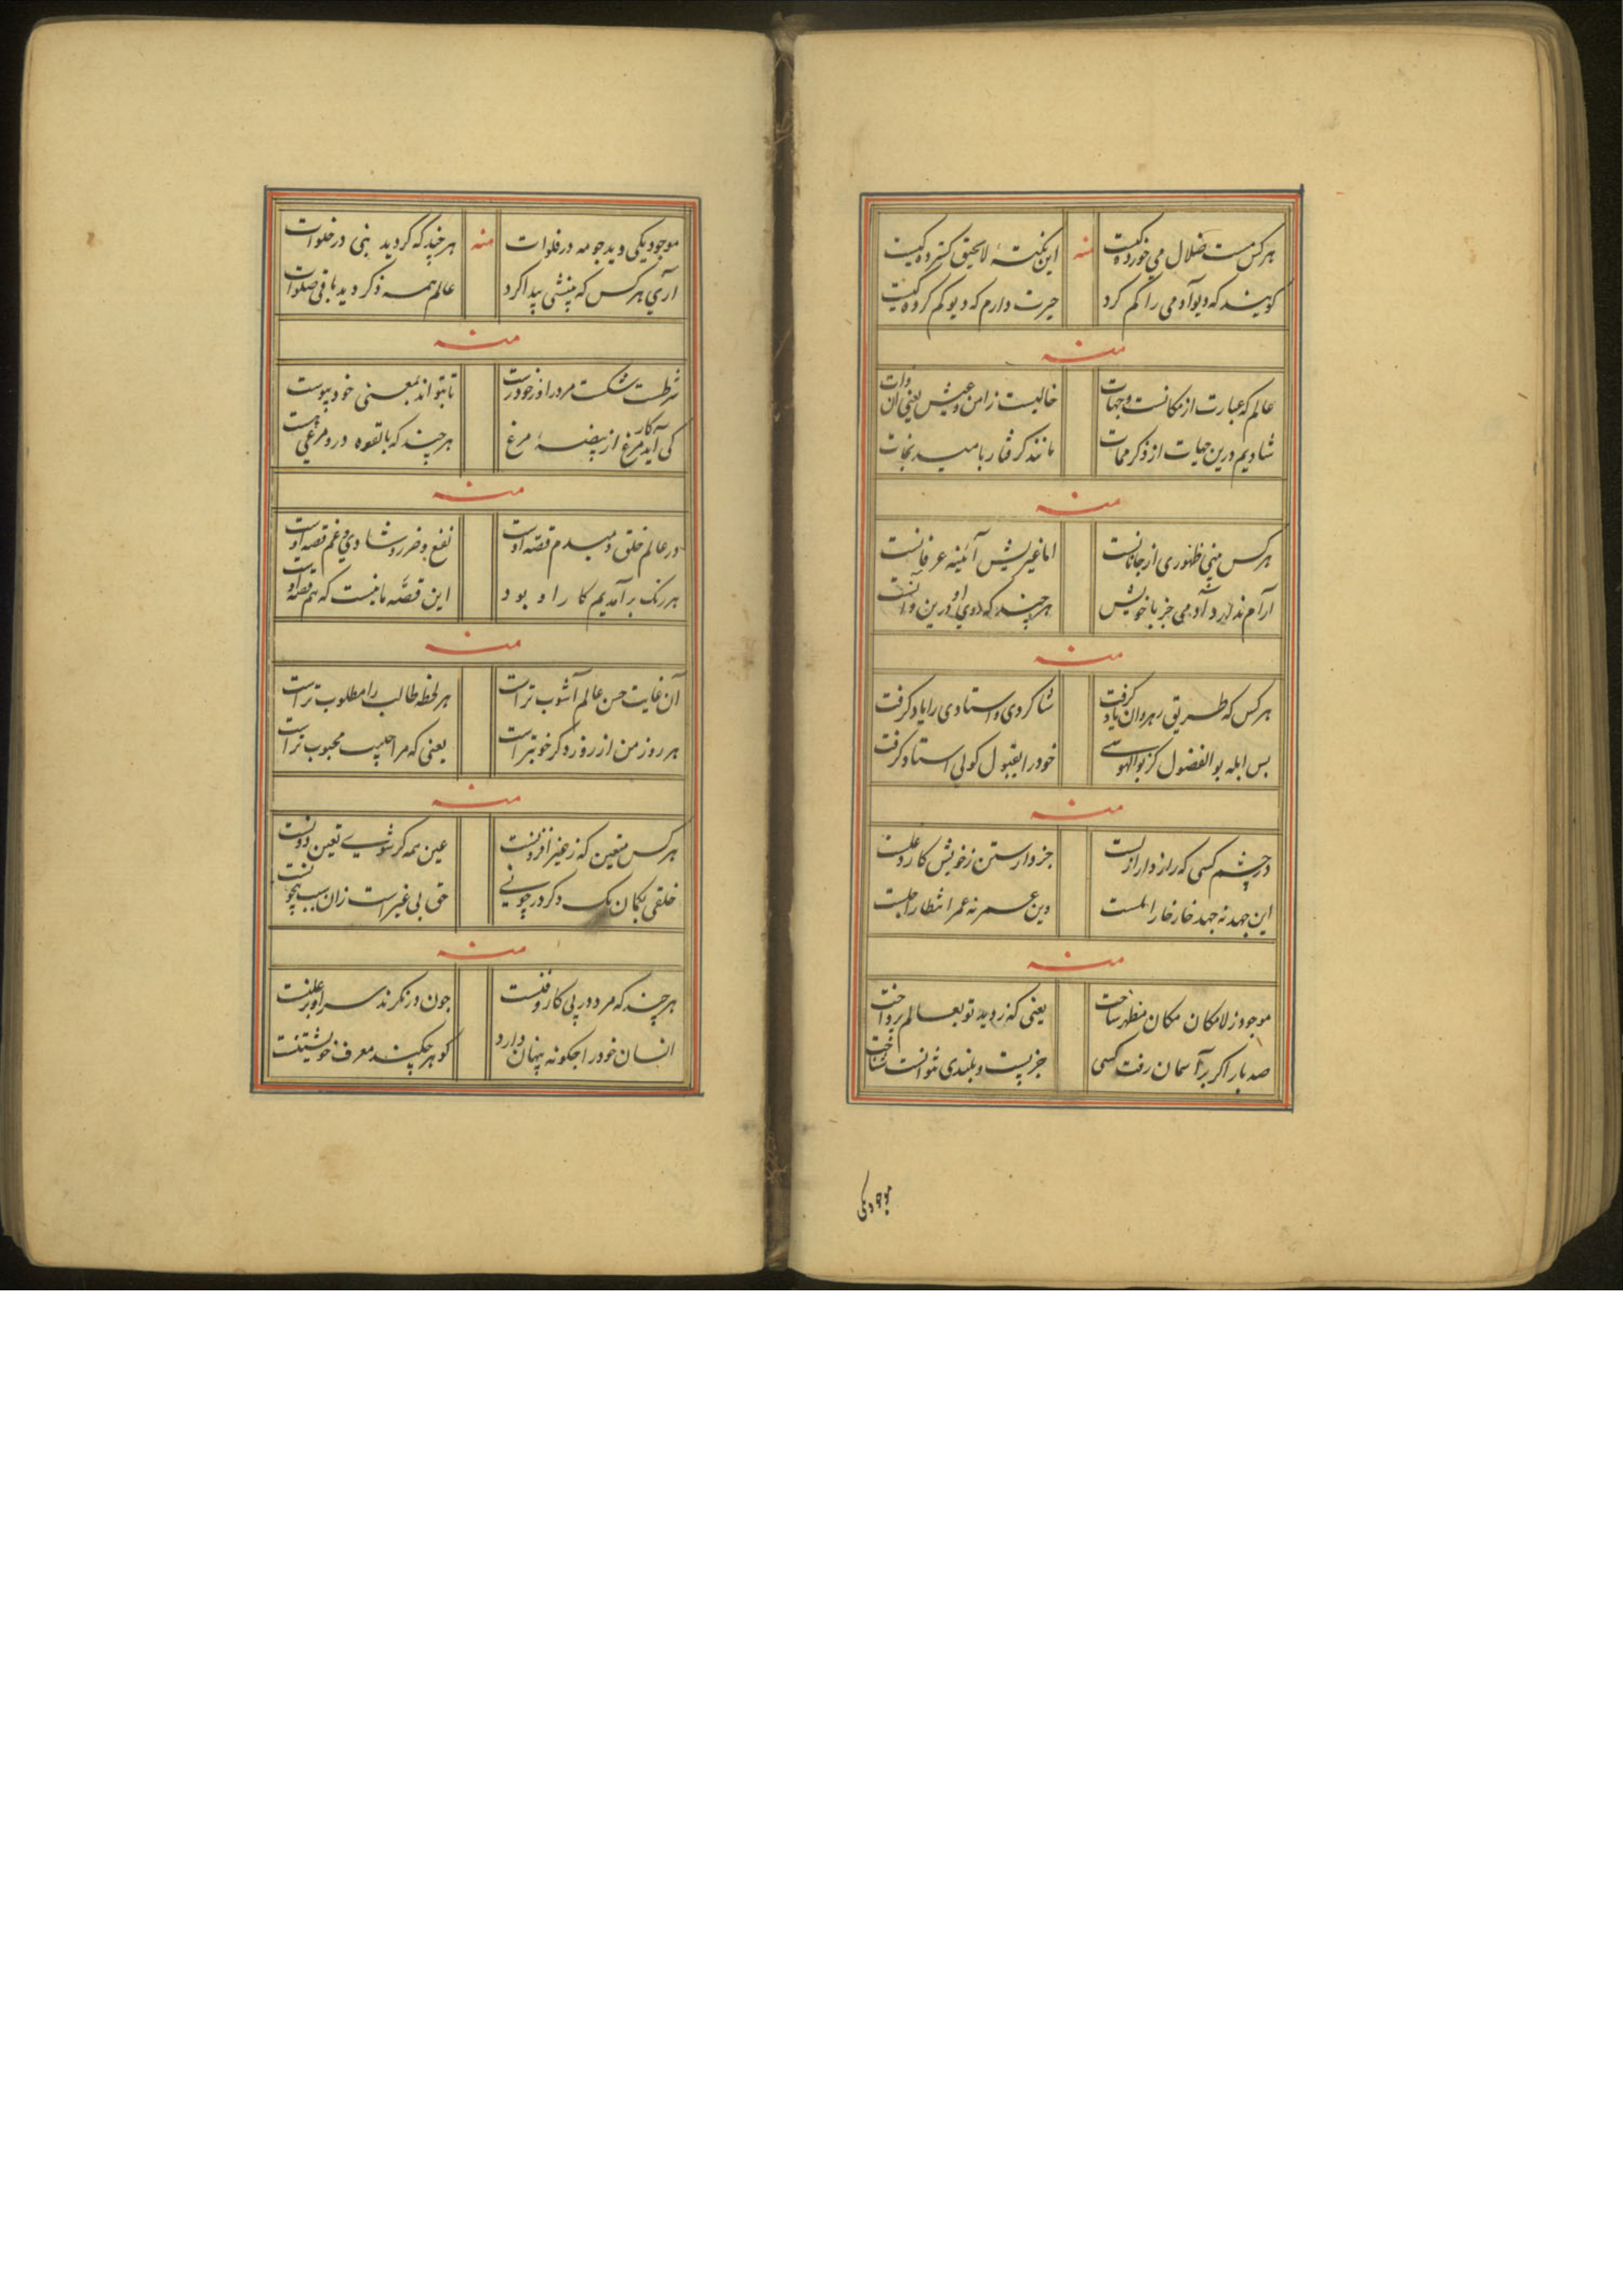 هر کس مست ضلال می خورده کیست منه این نکتهٔ لا یحیق کسترده کیست
کویند که دیو آدمی را کم کرد حیرت دارم که دیو کم کرده کیست
منه
عالم که عبارت از مکانست و جهات خالیست ز امن و عیش یعنی آن ذات
شادیم درین حیات از ذکر ممات مانند کرفتار بامید نجات
منه
هر کس منی ظهوری از جانانست اما غیریش آئینه عرفانست
آرام ندارد آدمی جز با خویش هر چند که روی او درین و آنست
منه
هر کس که طریق رهروان یاد کرفت شاکردی و استادی را یاد کرفت
بس ابله بو الفضول کز بوالهوسی خود را بقبول کولی استاد کرفت
منه
در چشم کسی که راز دار ازلست جز وارستن ز خویش کار دغلست
این جهد نه جهد خار خار املست وین عمر نه عمر انتظار اجلست
منه
موجود ز لامکان مکان مظهر ساخت یعنی که ز دید تو بعالم پرداخت
صد بار اکر بر آسمان رفت کسی جز پست و بلندی نتوانست شناخت
موجود یکی
موجود یکی دید چو مه در فلوات منه هر چند که کردید نبی در خلوات
آری هر کس که بینشی پیدا کرد عالم همه ذکر دید باقی صلوات
منه
شرطست شکست مرد را از خود رست تا بتواند بمعنی خود پیوست
کی آید کار مرغ از بیضهٔ مرغ هر چند که بالقوه درو مرغی هست
منه
در عالم خلق دمبدم قصه اوست نفع و ضرر و شادی و غم قصه اوست
هر رنک بر آمدیم کار او بود این قصّه ما نیست که هم قصه اوست
منه
آن غایت حسن عالم آشوب تر است هر لحظه طالب را مطلوب تر است
هر روز من از روز دکر خوبتر است یعنی که مرا حبیب محبوب تر است
منه
هر کس متعین که ز غیر افزونست عین همه کر شوی تعین دونست
خلقی بکمان یک دکر در چونی حق بی غیر است زان سبب بیچونست
منه
هر چند که مرد در پی کار و فنست چون در نکرند سر او بر علنست
انسان خود را چکونه پنهان دارد کو هر چکند معرف خویشتنست